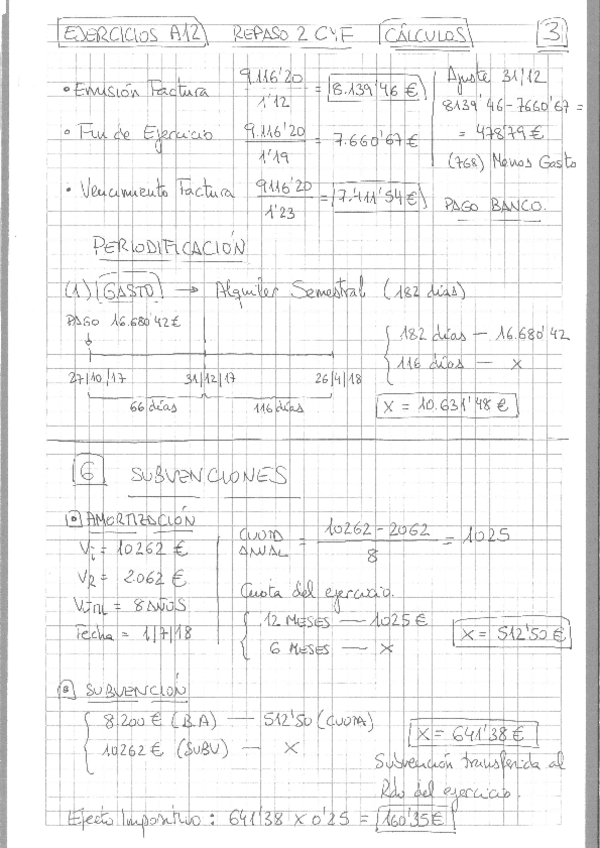 EJERCICIOS A12 REPASO 2 CYF CÁLCULOS 3
• Emisión Factura 9.116'20 / 1'12 = 8.139'46 €
• Fin de Ejercicio 9.116'20 / 1'19 = 7.660'67 €
• Vencimiento Factura 9116'20 / 1'23 = 7.411'54 €
Ajuste 31/12
8139'46 - 7660'67 =
= 478'79 €
(768) Menos Gasto
PAGO BANCO.
PERIODIFICACIÓN
(1) GASTO → Alquiler Semestral (182 días)
PAGO 16.680'42 €
27/10/17 31/12/17 26/4/18
66 días 116 días
182 días — 16.680'42
116 días — x
x = 10.631'48 €
6 SUBVENCIONES
AMORTIZACIÓN
Vi = 10262 €
VR = 2.062 €
Vútil = 8 AÑOS
Fecha = 1/7/18
CUOTA ANUAL = 10262 - 2062 / 8 = 1025
Cuota del ejercicio.
12 MESES — 1025 €
6 MESES — x
x = 512'50 €
SUBVENCIÓN
8.200 € (B.A) — 512'50 (CUOTA)
10262 € (SUBV) — x
x = 641'38 €
Subvención transferida al
Rdo del ejercicio.
Efecto Impositivo : 641'38 x 0'25 = 160'35 €